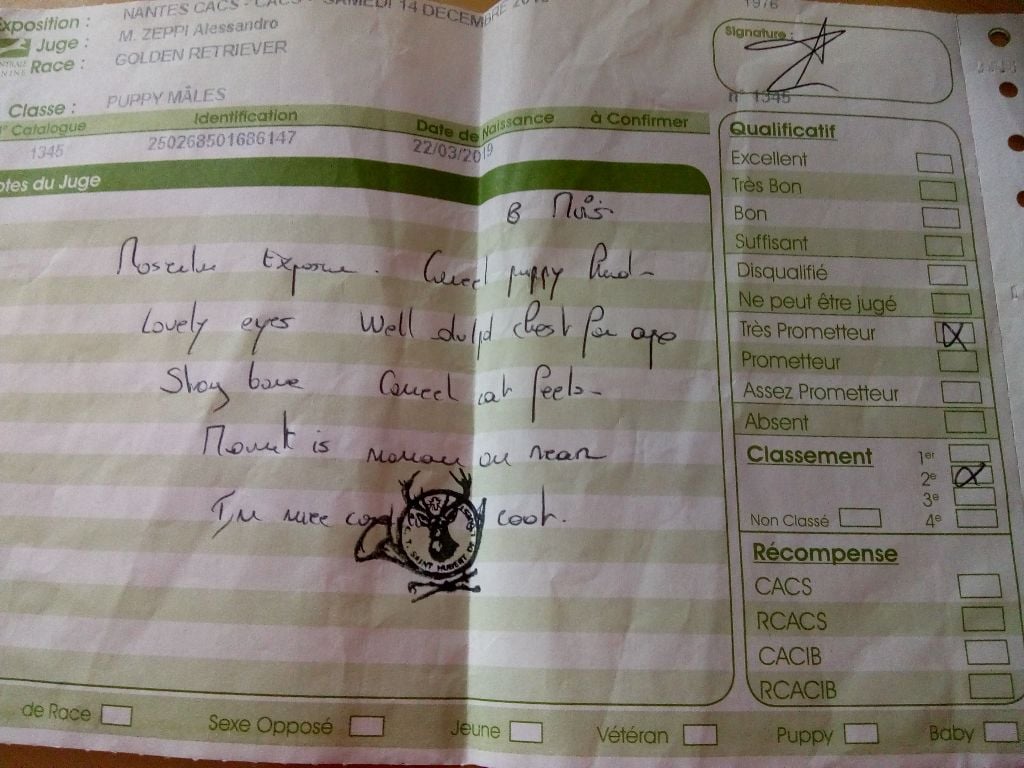 Exposition : NANTES CACS - CACS - SAMEDI 14 DECEMBRE
Juge : M. ZEPPI Alessandro
Race : GOLDEN RETRIEVER
Classe : PUPPY MÂLES
Signature :
n° 1345
Catalogue Identification Date de Naissance à Confirmer
1345 250268501686147 22/03/2019
Notes du Juge
8 Mois
Correct puppy head
Lovely eyes Well dvlpd chest for age
Strong bone Correct cat feets
Movement is narrow on rear
nice coat.
SAINT HUBERT
Qualificatif
Excellent
Très Bon
Bon
Suffisant
Disqualifié
Ne peut être jugé
Très Prometteur X
Prometteur
Assez Prometteur
Absent
Classement 1er
2e X
3e
Non Classé 4e
Récompense
CACS
RCACS
CACIB
RCACIB
de Race Sexe Opposé Jeune Vétéran Puppy Baby